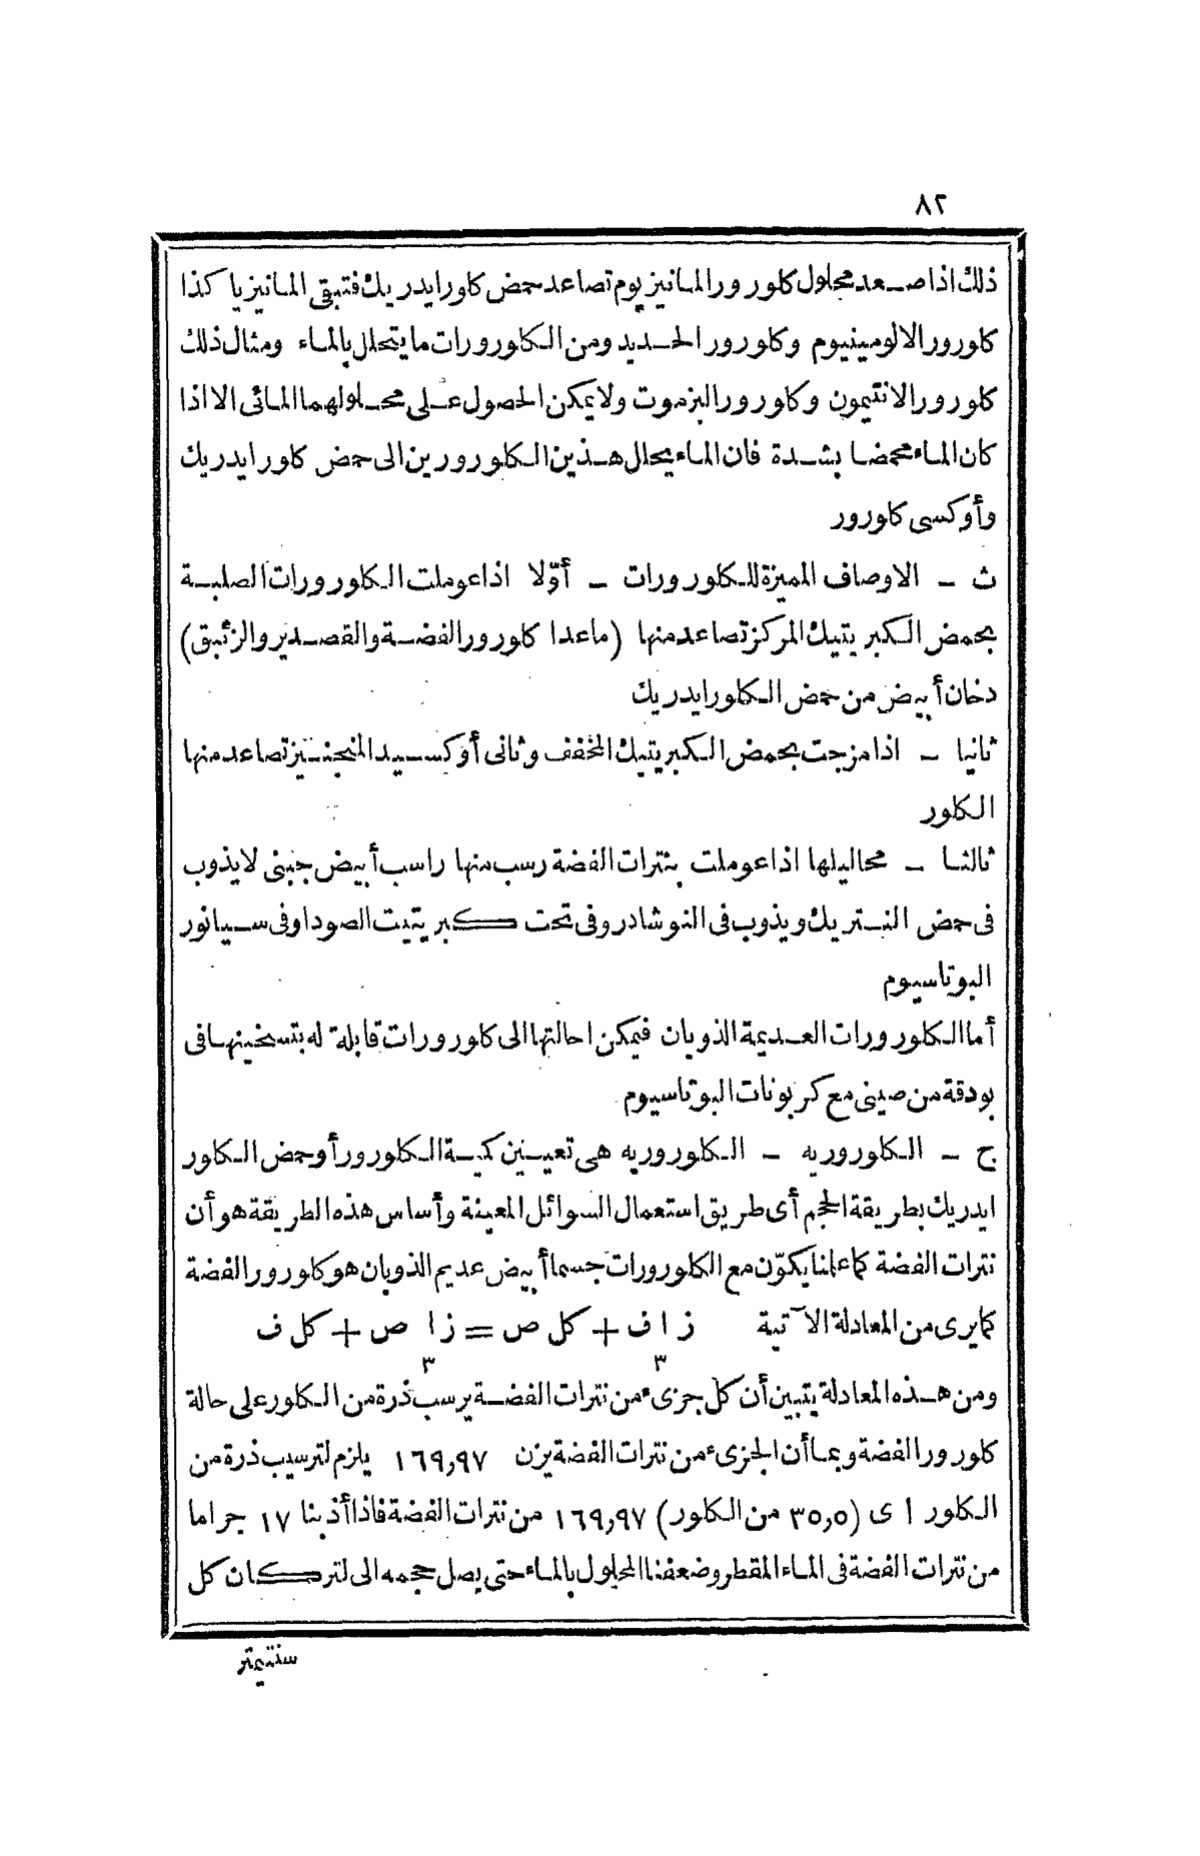 ٨٢
ذلك اذا صعد محلول كلورور المانيزيوم تصاعد حمض كلورايدريك فتبقى المانيزيا كذا
كلورور الالومينيوم وكلورور الحديد ومن الكلورورات ما يتحلل بالماء ومثال ذلك
كلورور الانتيمون وكلورور البزموت ولا يمكن الحصول على محلولهما المائى الا اذا
كان الماء محمضا بشدة فان الماء يحلل هذين الكلورورين الى حمض كلور ايدريك
وأوكسى كلورور
ث - الاوصاف المميزة للكلورورات - أوّلا اذا عوملت الكلورورات الصلبة
بحمض الكبريتيك المركز تصاعد منها (ماعدا كلورور الفضة والقصدير والزئبق)
دخان أبيض من حمض الكلورايدريك
ثانيا - اذا مزجت بحمض الكبريتيك المخفف وثانى أوكسيد المنجنيز تصاعد منها
الكلور
ثالثا - محاليلها اذا عوملت بنترات الفضة رسب منها راسب أبيض جبنى لا يذوب
فى حمض النتريك ويذوب فى النوشادر وفى تحت كبريتيت الصودا وفى سيانور
البوتاسيوم
أما الكلورورات العديمة الذوبان فيمكن احالتها الى كلورورات قابلة له بتسخينها فى
بودقة من صينى مع كربونات البوتاسيوم
ج - الكلوروريه - الكلوروريه هى تعيين كمية الكلورور أو حمض الكلور
ايدريك بطريقة الحجم أى طريق استعمال السوائل المعينة وأساس هذه الطريقة هو أن
نترات الفضة كما علمنا يكوّن مع الكلورورات جسما أبيض عديم الذوبان هو كلورور الفضة
كما يرى من المعادلة الآتية ز ا ف + كل ص = ز ا ص + كل ف
٣ ٣
ومن هذه المعادلة يتبين أن كل جزىء من نترات الفضة يرسب ذرة من الكلور على حالة
كلورور الفضة وبما أن الجزىء من نترات الفضة يزن ١٦٩,٩٧ يلزم لترسيب ذرة من
الكلور ا ى (٣٥,٥ من الكلور) ١٦٩,٩٧ من نترات الفضة فاذا أذبنا ١٧ جراما
من نترات الفضة فى الماء المقطر وضعفنا المحلول بالماء حتى يصل حجمه الى لتر كان كل
سنتيمتر